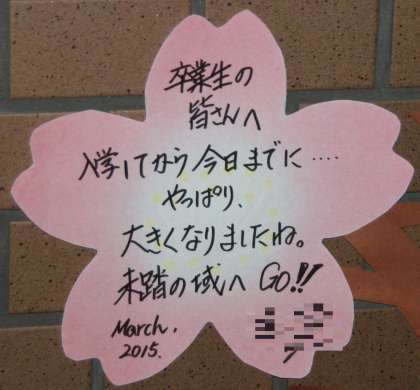 卒業生の
皆さんへ
入学してから今日までに‥‥
やっぱり、
大きくなりましたね。
未踏の域へ GO!!
March.
2015.